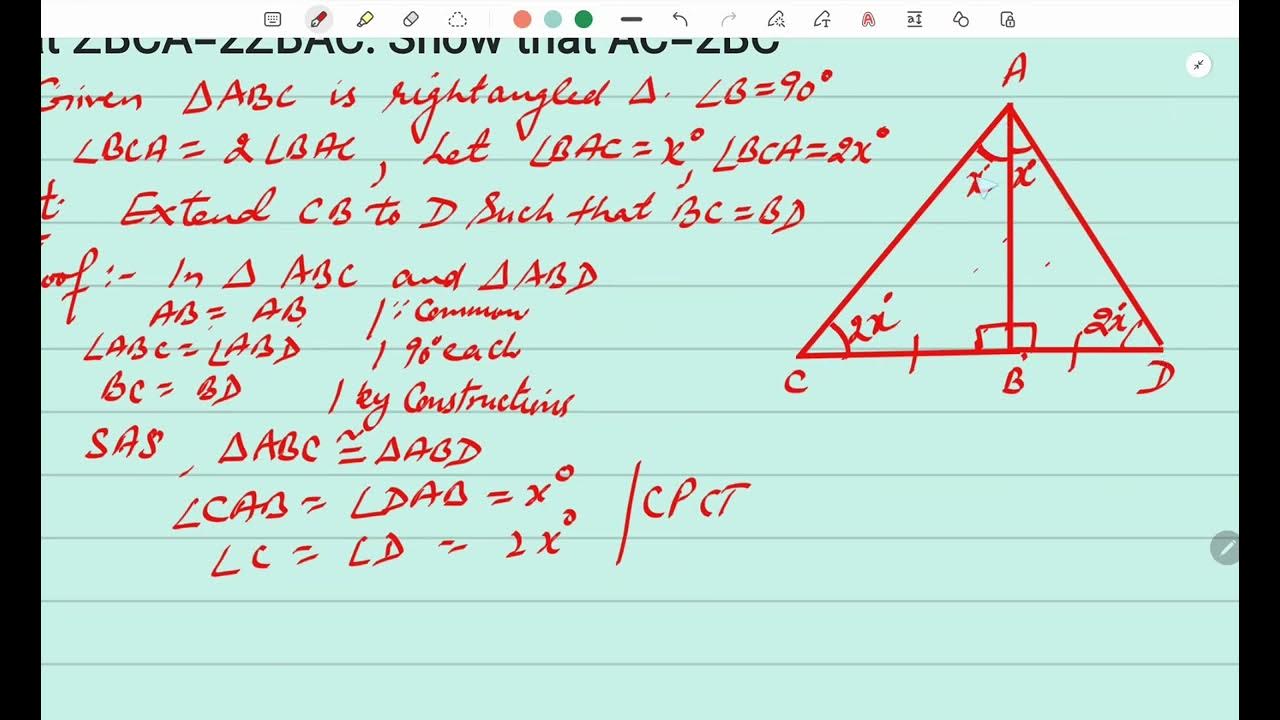 at ∠BCA=2∠BAC. Show that AC=2BC
Given △ABC is rightangled △. ∠B=90°
∠BCA = 2∠BAC, Let ∠BAC = x°, ∠BCA=2x°
t: Extend CB to D Such that BC=BD
oof :- In △ ABC and △ABD
AB = AB | ∵ Common
∠ABC = ∠ABD | 90° each
BC = BD | by Constructions
SAS, △ABC ≅ △ABD
∠CAB = ∠DAB = x°, | CPCT
∠C = ∠D = 2x°
A
x° x°
2x° 2x°
C B D